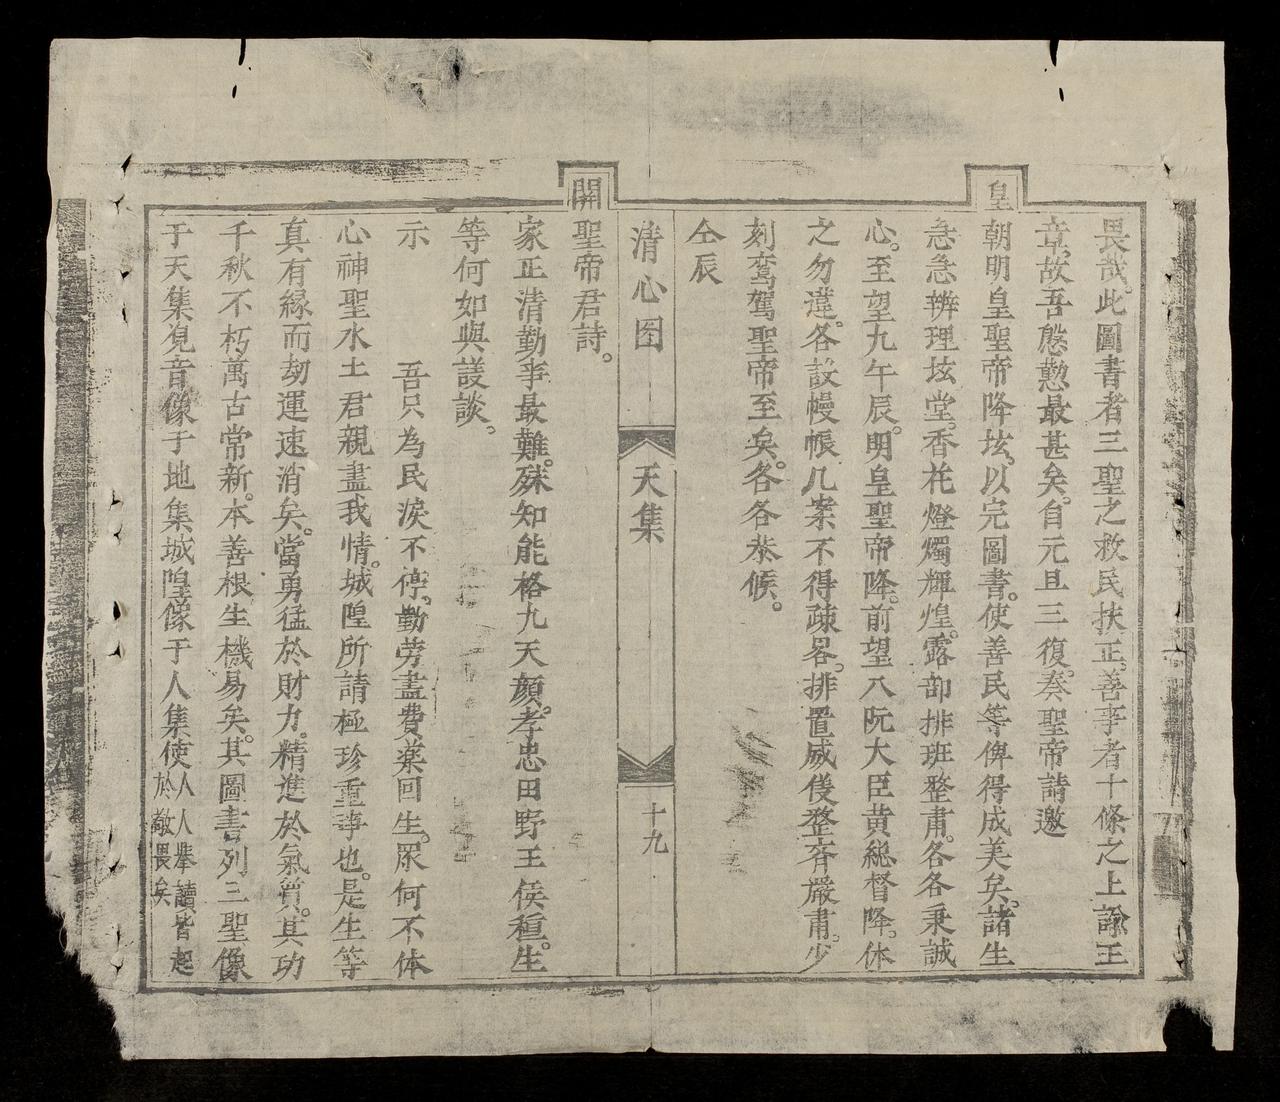 畏哉。此圖書者三聖之救民扶正。善事者十條之上諭王
章。故吾慇懃最甚矣。自元旦三復。奏聖帝請邀
皇
朝明皇聖帝降坛。以完圖書。使善民等俾得成美矣。諸生
急急辨理坛堂。香花燈燭輝煌。露部排班整肅。各各秉誠
心。至望九午辰。明皇聖帝降。前望八阮大臣黃総督降。休
之勿違。各設幔帳几案不得疎畧。排置威儀整斉嚴肅。少
刻鸞駕聖帝至矣。各各恭候。
仝辰
清心图
天集
十九
開
聖帝君詩。
家正清勤亊最難。殊知能格九天顏。孝忠田野王侯種。生
等何如與議談。
示　吾只為民淚不停。勤劳盡費藥回生。眾何不体
心神聖水土君親盡我情。城隍所請極珍重亊也。是生等
真有緣而劫運速消矣。當勇猛於財力。精進於氣質。其功
千秋不朽萬古常新。本善根生機易矣。其圖書列三聖像
于天集覌音像于地集城隍像于人集使人人攀讀皆起
於敬畏矣